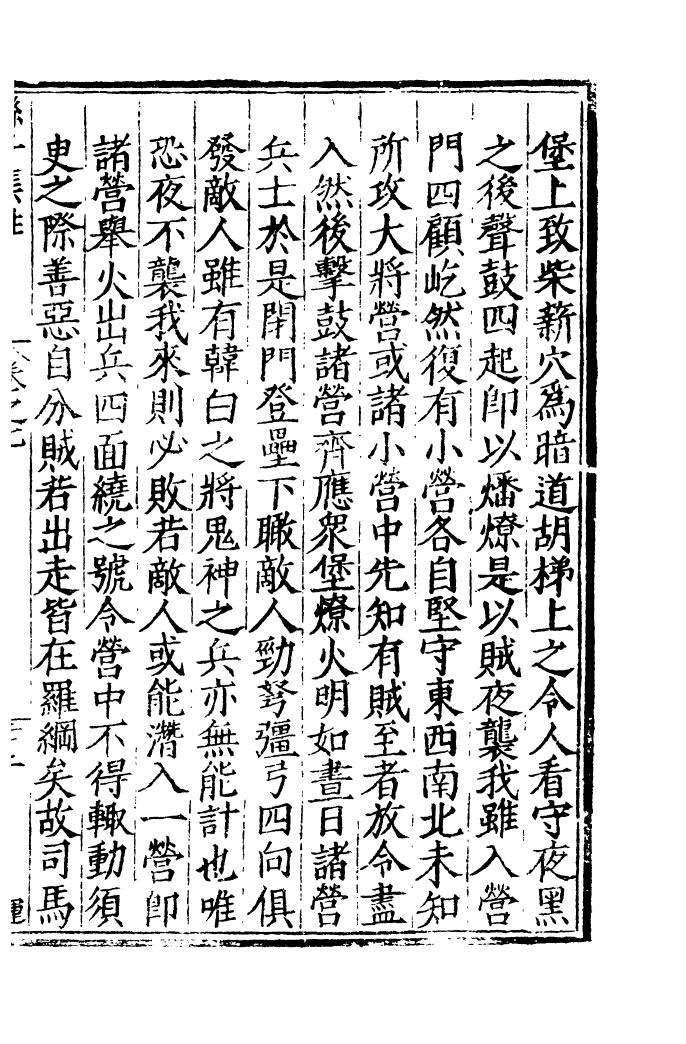 堡上致柴薪穴為暗道胡梯上之令人看守夜黑
之後聲鼓四起即以燔燎是以賊夜襲我雖入營
門四顧屹然復有小營各自堅守東西南北未知
所攻大將營或諸小營中先知有賊至者放令盡
入然後擊鼓諸營齊應衆堡燎火明如晝日諸營
兵士於是閉門登壘下瞰敵人勁弩彊弓四向俱
發敵人雖有韓白之將鬼神之兵亦無能計也唯
恐夜不襲我來則必敗若敵人或能潛入一營即
諸營舉火出兵四面繞之號令營中不得輙動須
史之際善惡自分賊若出走皆在羅網矣故司馬